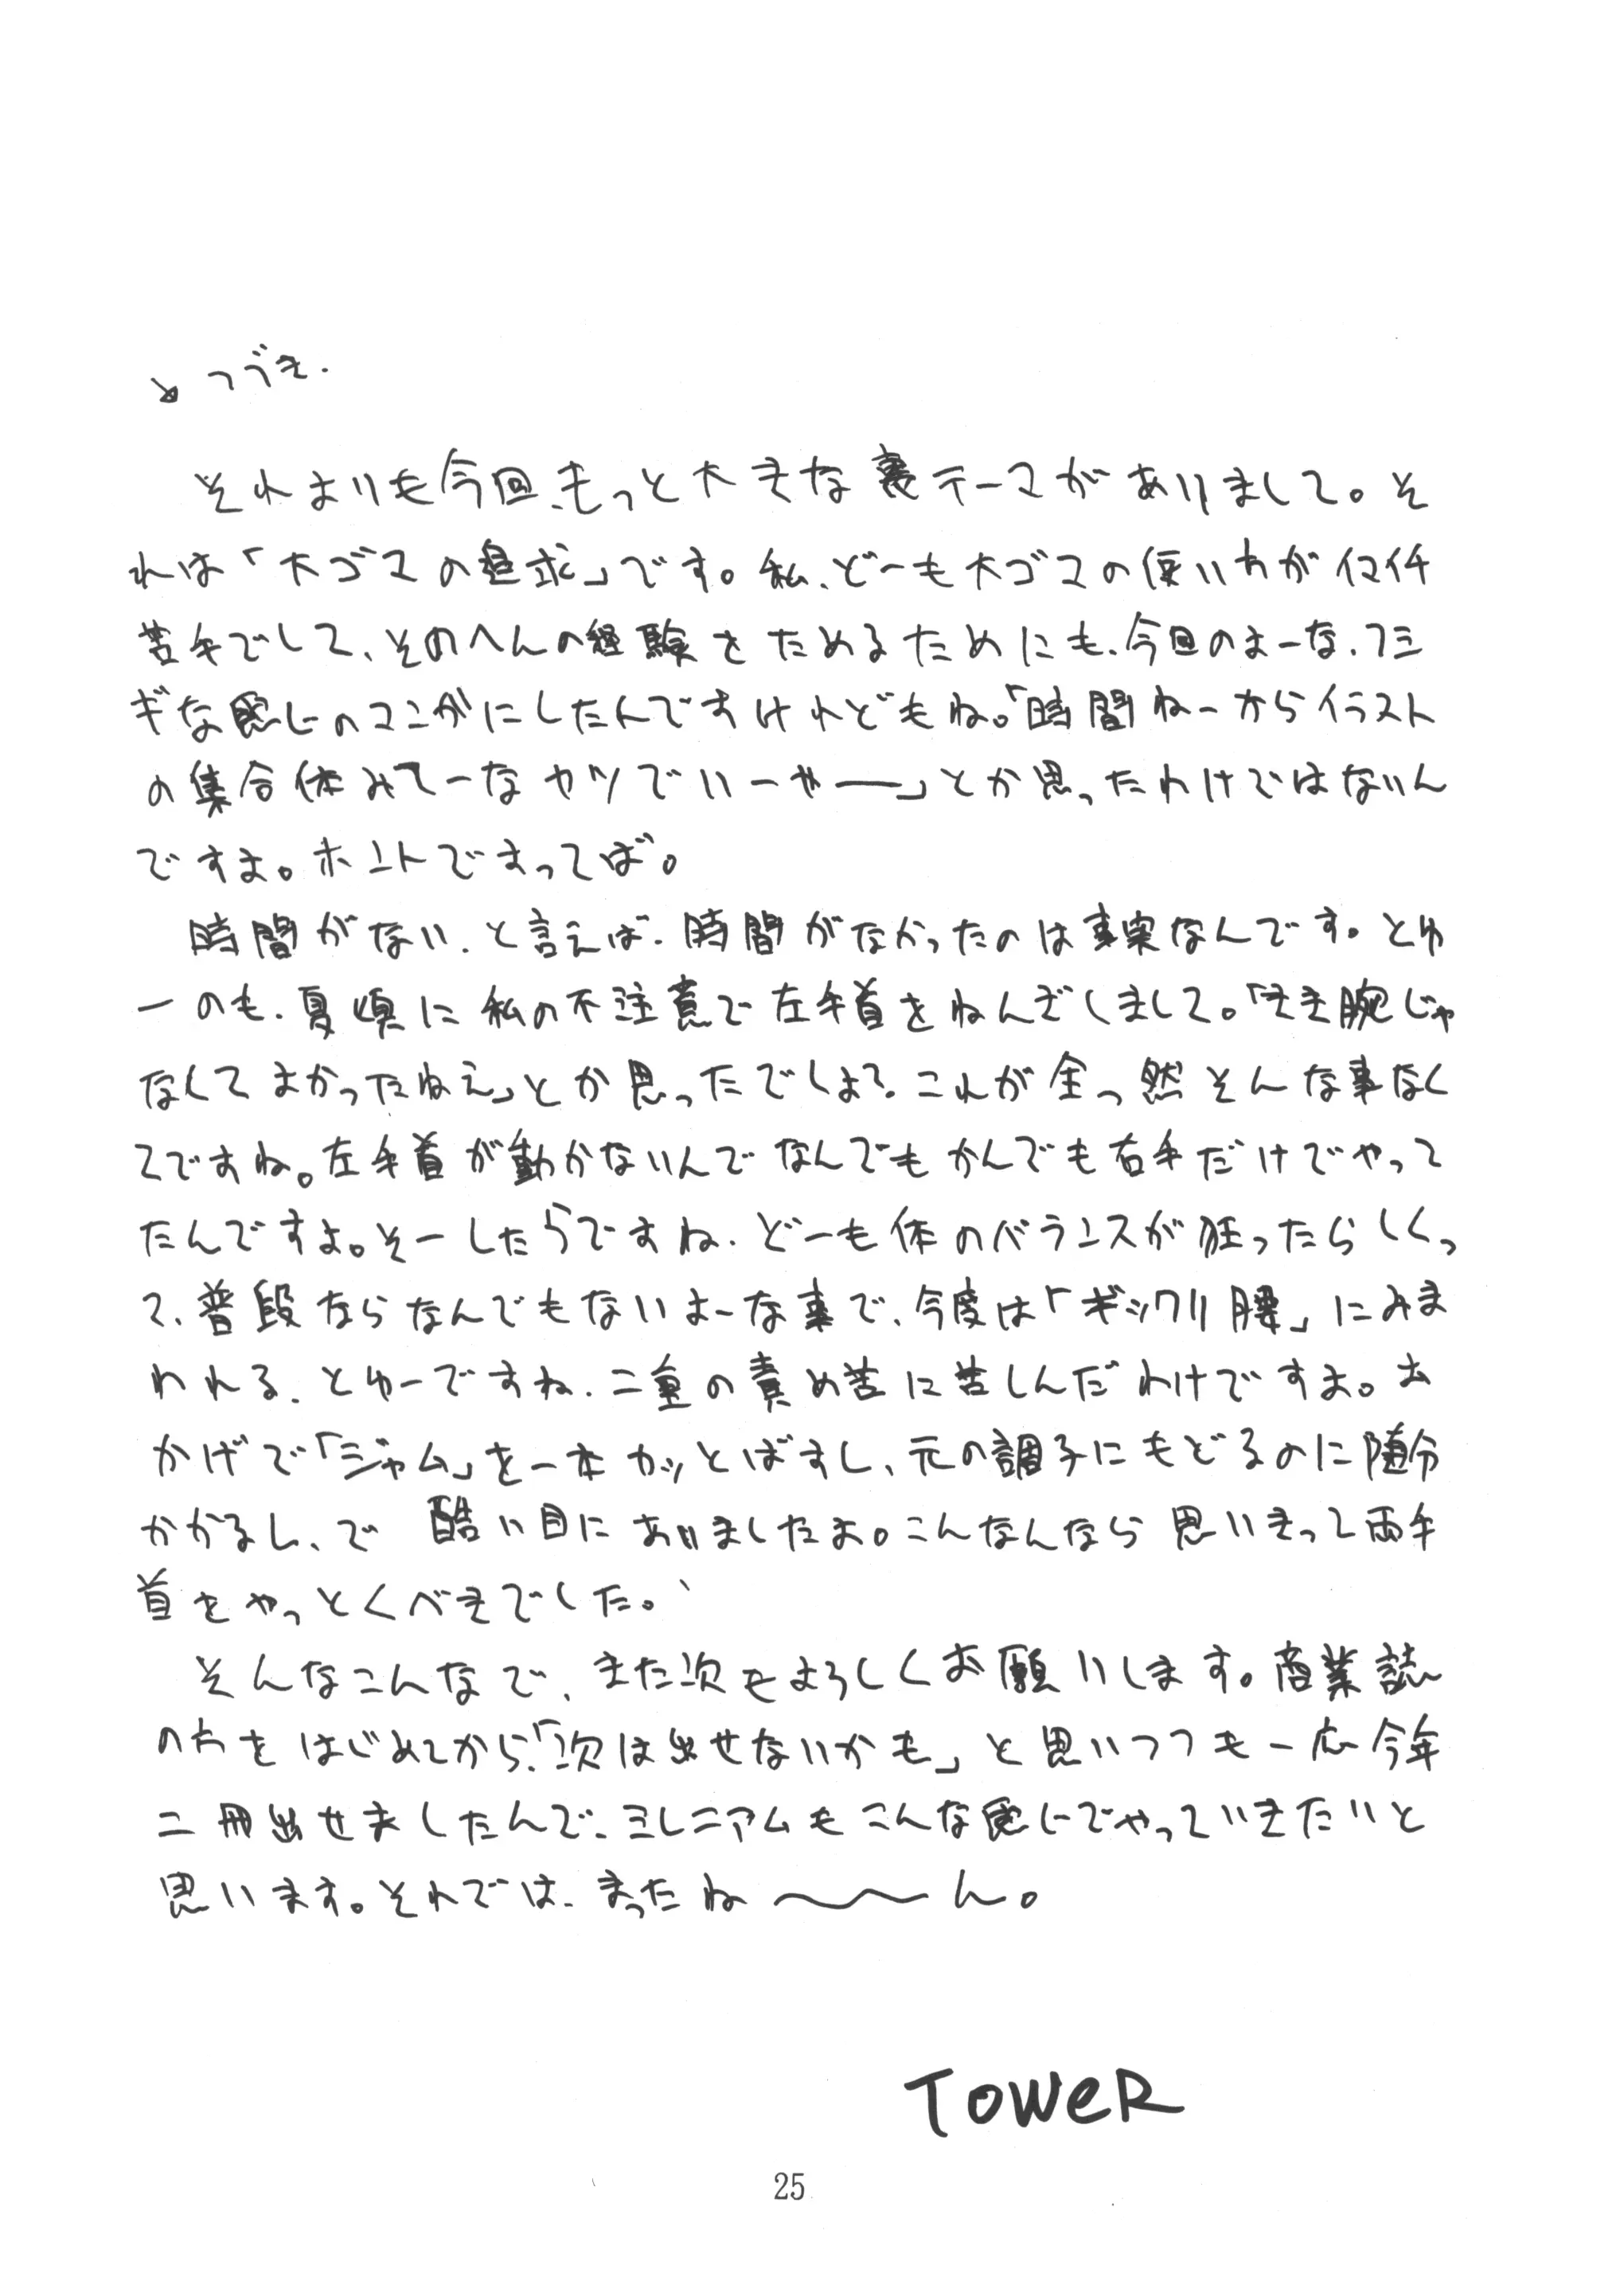 ↘つづき.
それよりも今回、もっと大きな裏テーマがありまして。そ
れは「大ゴマの追求」です。私、どーも大ゴマの使い方がイマイチ
苦手でして、そのへんの経験をためるためにも、今回のよーな、フシ
ギな感じのマンガにしたんですけれどもね。「時間ねーからイラスト
の集合体みてーなヤツでいーやー」とか思ったわけではないん
ですよ。ホントですってば。
時間がない、と言えば、時間がなかったのは事実なんです。とゆ
ーのも、夏頃に私の不注意で左手首をねんざしまして。「きき腕じゃ
なくてよかったねえ」とか思ったでしょ?これが全っ然そんな事なく
てですね。左手首が動かないんでなんでもかんでも右手だけでやって
たんですよ。そーしたらですね、どーも体のバランスが狂ったらしくっ
て、普段ならなんでもないよーな事で、今度は「ギックリ腰」にみま
われる、とゆーですね、二重の責め苦に苦しんだわけですよ。お
かげで「ジャム」を一本カッとばすし、元の調子にもどるのに随分
かかるし、で 酷い目にあいましたよ。こんなんなら思いきって両手
首をやっとくべきでした。
そんなこんなで、また次もよろしくお願いします。商業誌
の方をはじめてから、「次は出せないかも」と思いつつも一応今年
二冊出せましたんで、ミレニアムもこんな感じでやっていきたいと
思います。それでは、まったね〜〜ん。
TOWeR
25